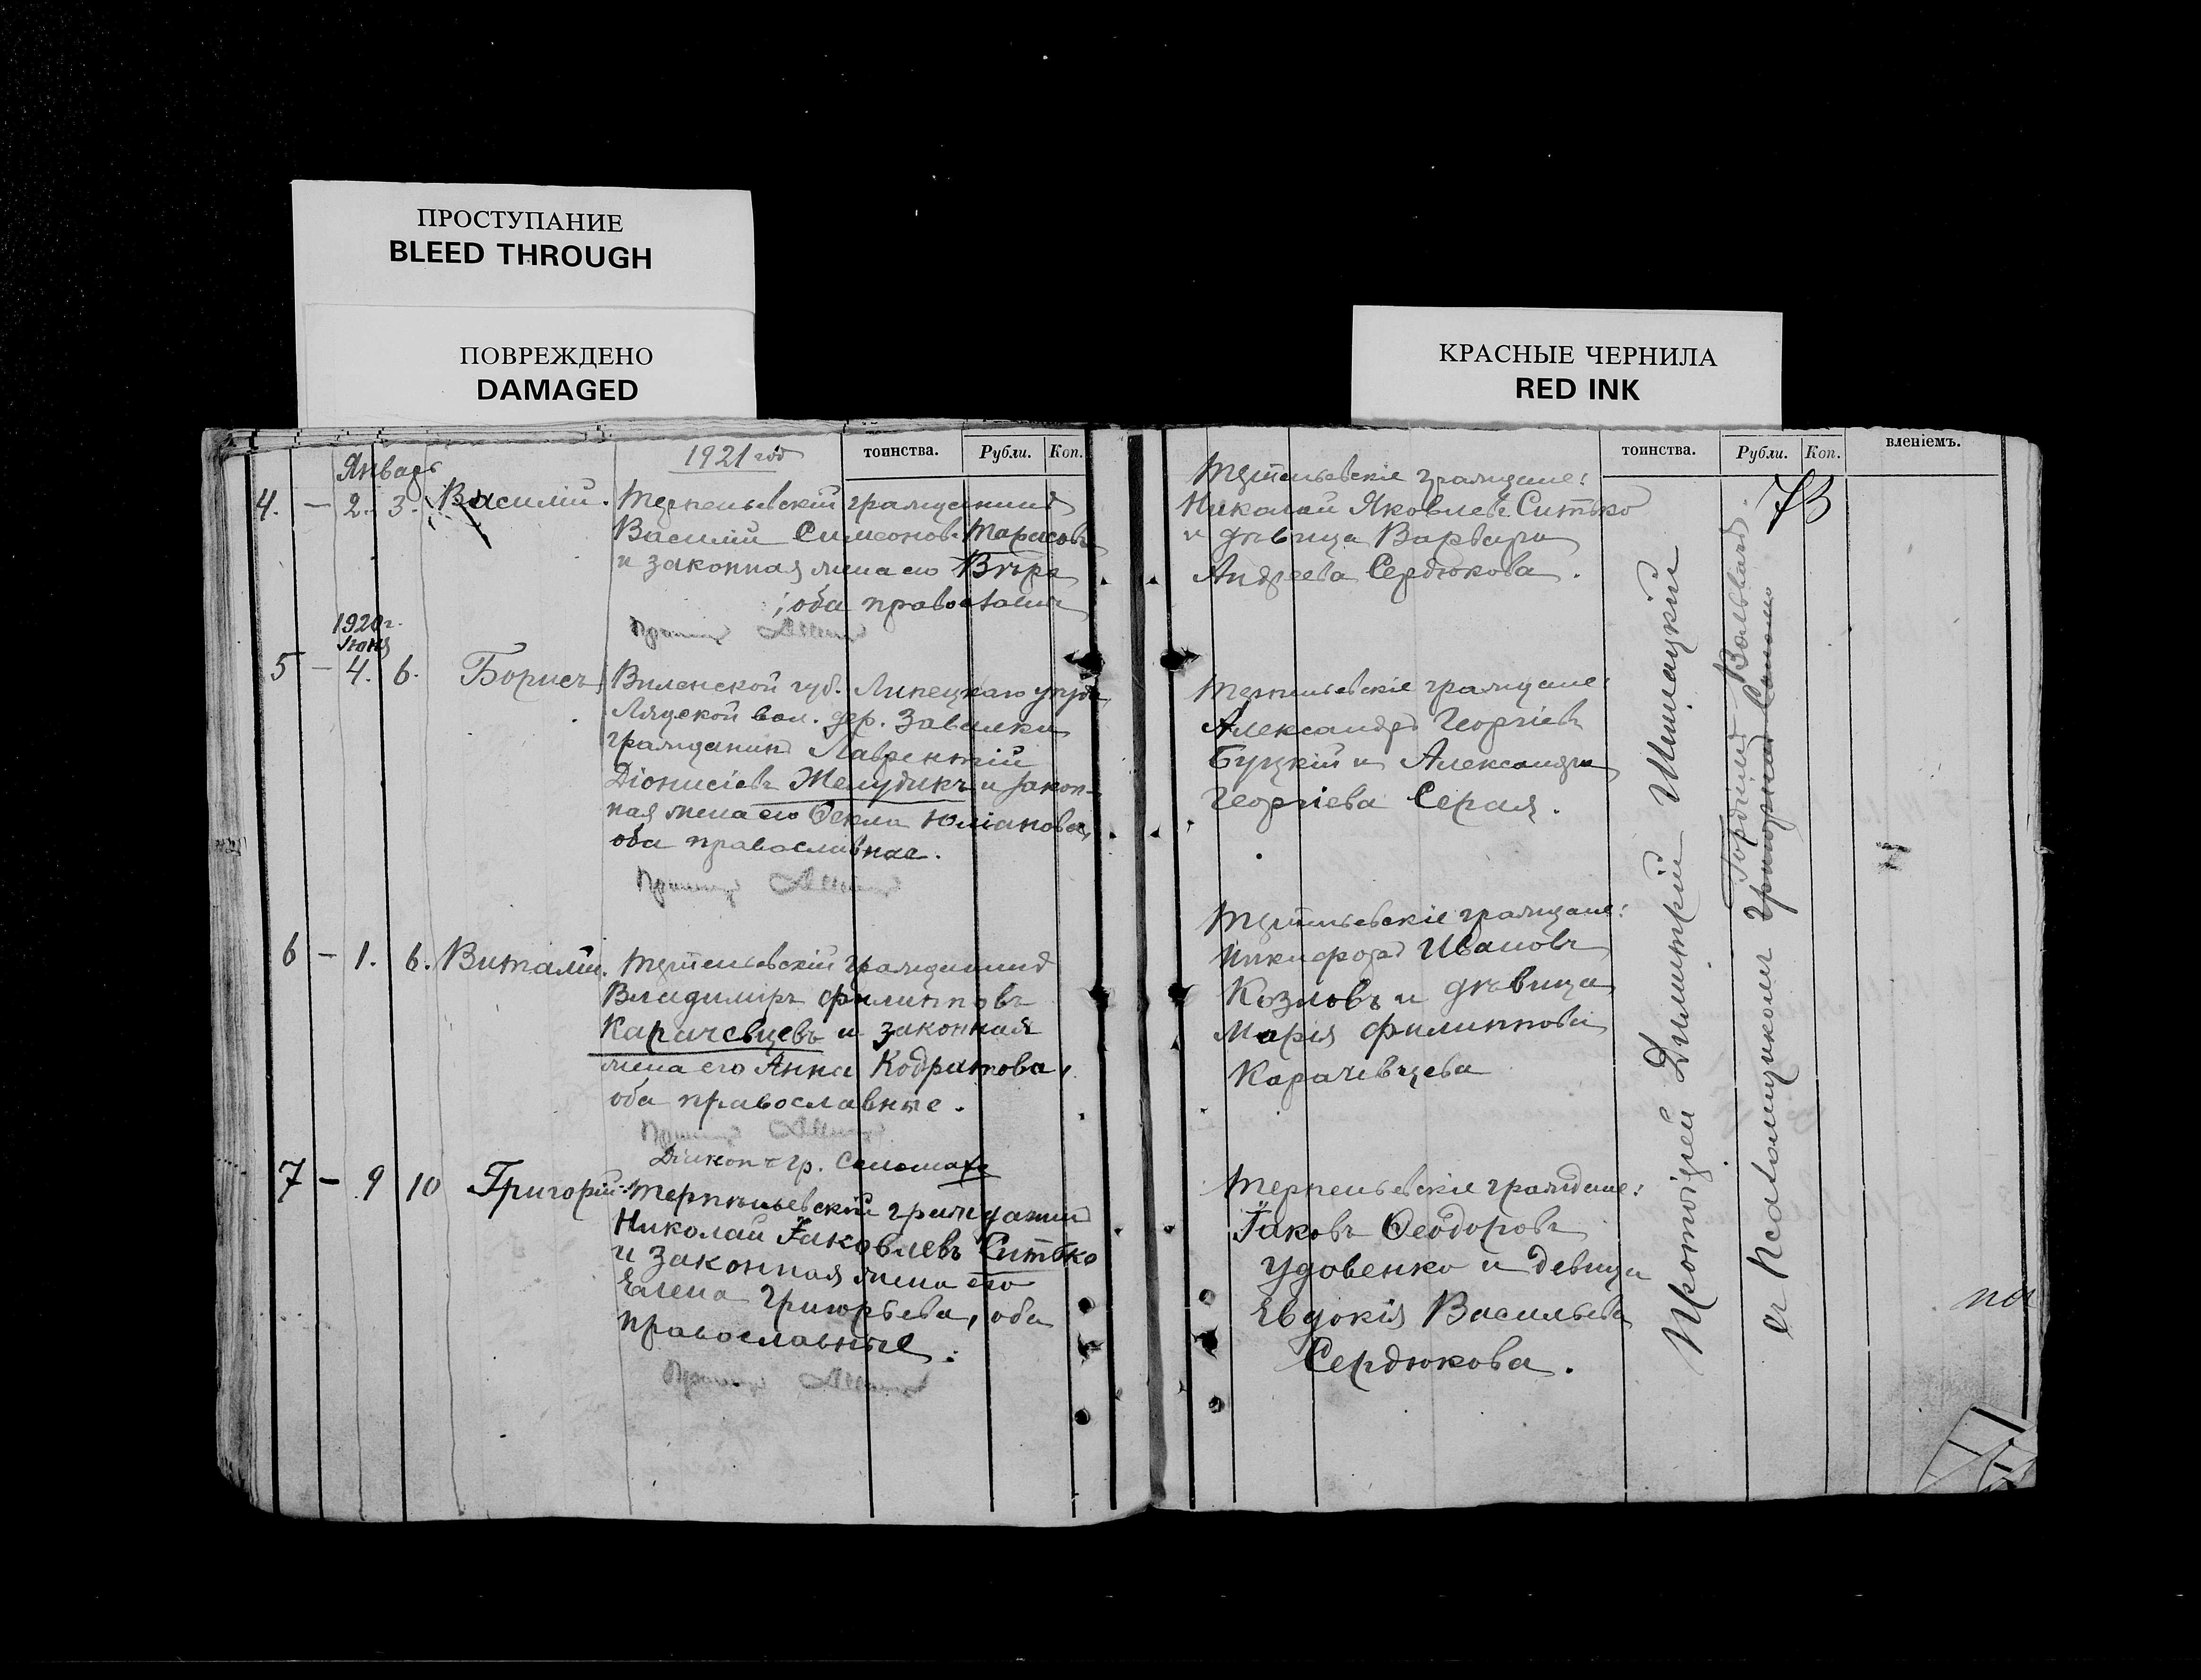 ПРОСТУПАНИЕ
BLEED THROUGH
ПОВРЕЖДЕНО
DAMAGED
КРАСНЫЕ ЧЕРНИЛА
RED INK
1921 год
тоинства. Рубли. Коп.
Январь
4. – 2. 3. Василій. Терпеньевскій гражданинъ
Василій Симеоновъ Тарасовъ
и законная жена его Вѣра
; оба православные
1920 г.
Іюня
5 – 4. 6. Борисъ Виленской губ. уѣзда
вол. дер. Завалки
гражданинъ Лаврентій
Діонисіевъ Желудикъ и закон-
ная жена его Ѳекла Юліанова,
оба православные.
6 – 1. 6. Виталій. Терпеньевскій гражданинъ
Владимиръ Филипповъ
Карачевцевъ и законная
жена его Анна Кодратова,
оба православные.
Діакон гр.
7 – 9 10 Григорій: Терпѣньевскій гражданин
Николай Іаковлевъ Ситько
и законная жена его
Елена Григорьева, оба
православные.
тоинства. Рубли. Коп. вленіемъ.
73
Терпеньевскіе граждане:
Николай Яковлевъ Ситько
и дѣвица Варвара
Андреева Сердюкова.
Терпеньевскіе граждане:
Александръ Георгіевъ
Буцкій и Александра
Георгіева Серая.
Терпеньевскіе граждане:
Никифоръ Ивановъ
Козловъ и дѣвица
Марія Филиппова
Карачевцева
Терпеньевскіе граждане:
Іаковъ Ѳеодоровъ
Удовенко и девица
Евдокія Васильева
Сердюкова.
Протоіерей Димитрій
съ Псаломщикомъ Григоріемъ